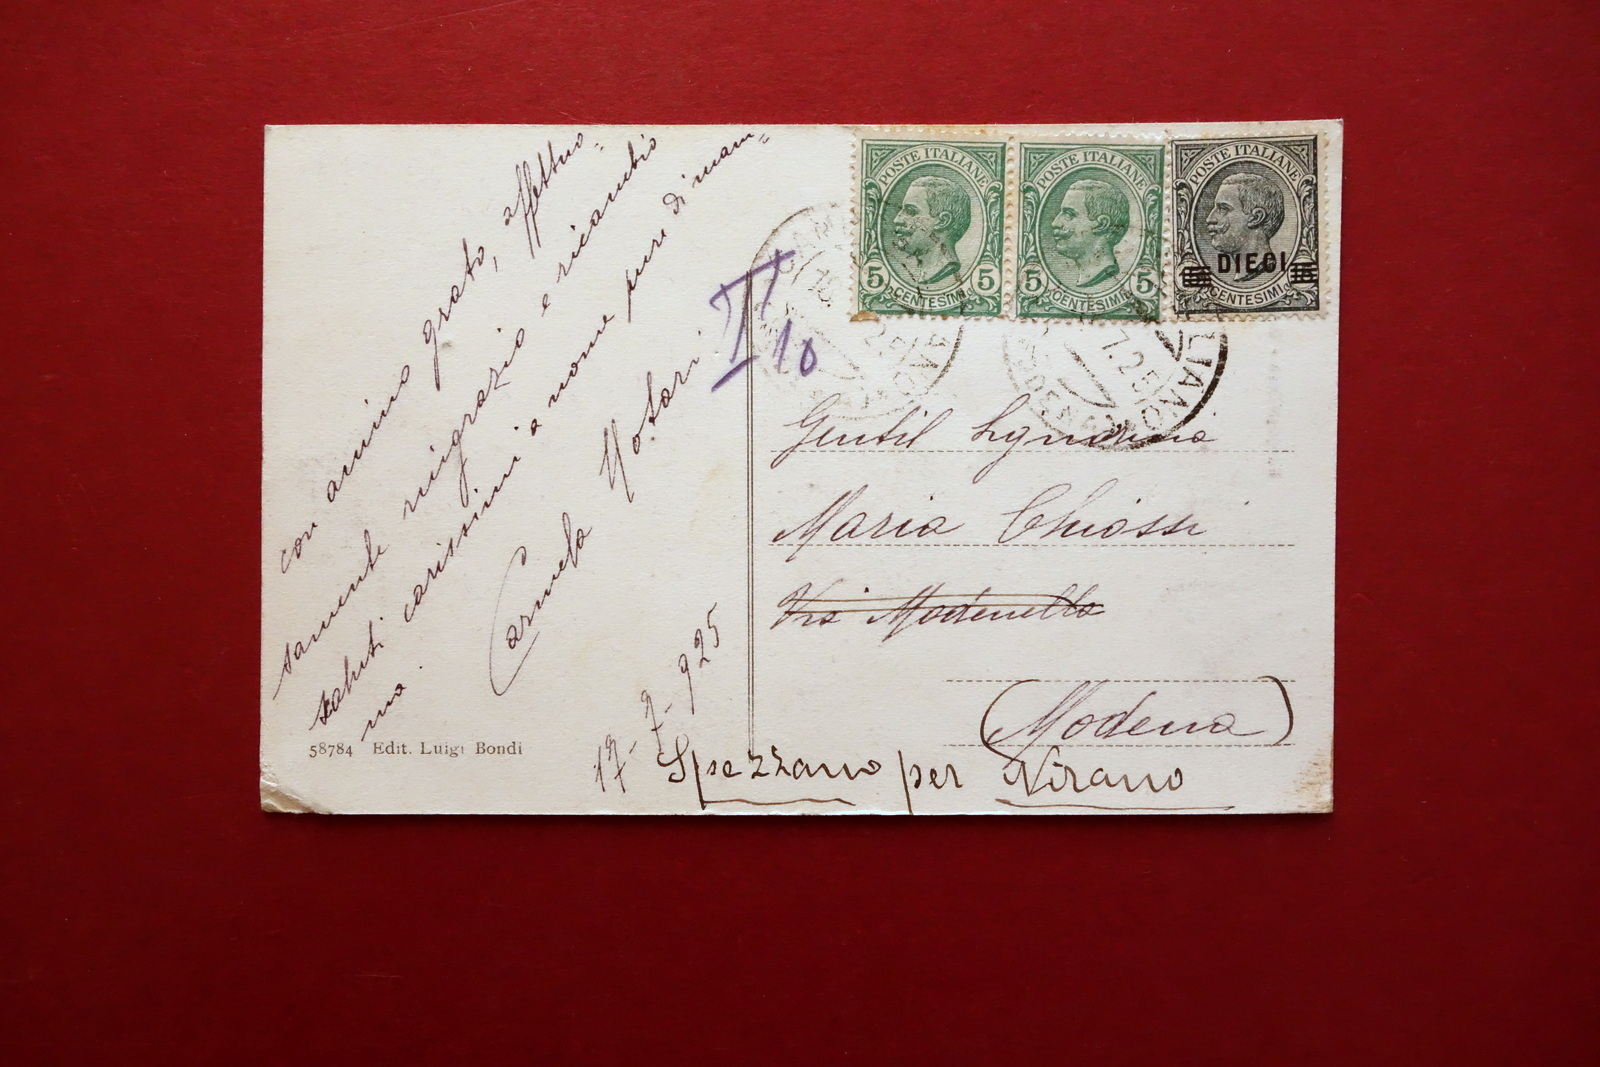 con animo grato, affettuo-
samente ringrazio e ricambio
saluti carissimi a nome pure di mam=
ma.
Carmela Notari
17-7-925
58784 Edit. Luigi Bondi
POSTE ITALIANE
5 CENTESIMI 5
POSTE ITALIANE
5 CENTESIMI 5
POSTE ITALIANE
DIECI
CENTESIMI
T 10
7.25
Gentil Signorina
Maria Chiossi
Via Modenella
(Modena)
Spezzano per Nirano